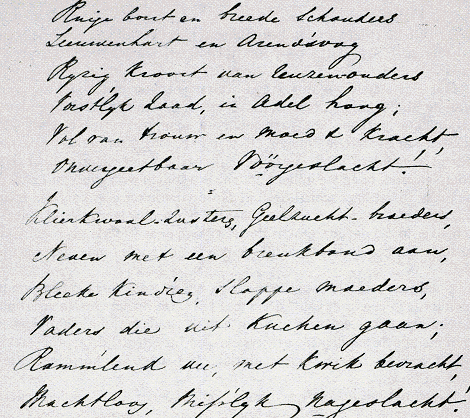 Ruige borst en breede Schouders
Leeuwenhart en Arendsoog
Ryzig Kroost van Reuzenouders
Vorstlyk Zaad, in Adel hoog;
Vol van trouw en moed & Kracht,
Onvergeetbaar Vóórgeslacht!
Klierkwaal-Zusters, Geelzucht-broeders,
Neven met een breukband aan,
Bleeke Kind'ren, Slappe moeders,
Vaders die uit Kuchen gaan;
Ramm'lend vee, met Kwik bevracht,
Machtloos, Miss'lyk Nageslacht!